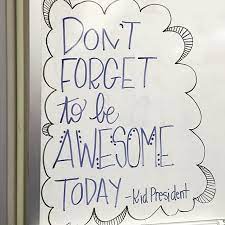 DON'T
FORGET
to be
AWESOME
TODAY
-Kid President